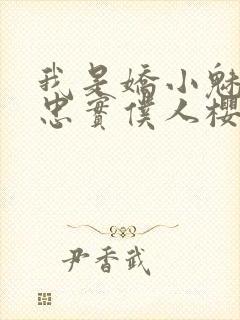 我是嬌小魅
忠實僕人櫻
尹香武